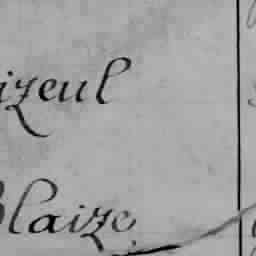 izeul
Blaize